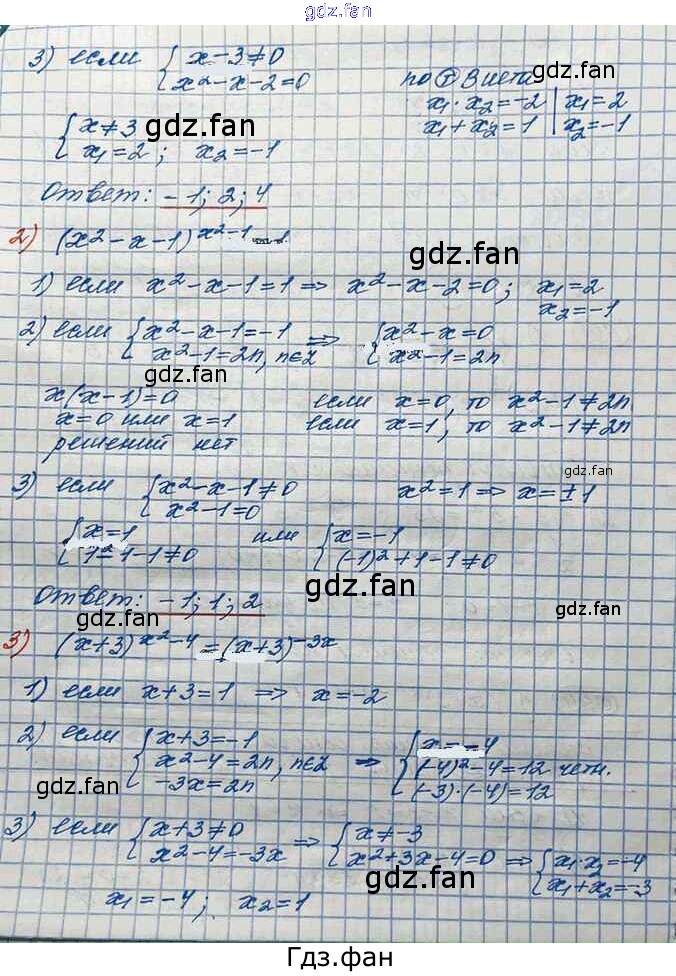 gdz.fan
3) если { x-3≠0
x²-x-2=0
по т. Виета
x₁·x₂=-2 | x₁=2
x₁+x₂=1 | x₂=-1
gdz.fan
{ x≠3
x₁=2; x₂=-1
gdz.fan
Ответ: -1; 2; 4
2) (x²-x-1)^(x²-1)=1
gdz.fan
1) если x²-x-1=1 ⇒ x²-x-2=0; x₁=2
x₂=-1
gdz.fan
2) если { x²-x-1=-1
x²-1=2n, n∈Z ⇒ { x²-x=0
x²-1=2n
gdz.fan
x(x-1)=0
x=0 или x=1
решений нет
если x=0, то x²-1≠2n
если x=1, то x²-1≠2n
gdz.fan
3) если { x²-x-1≠0
x²-1=0
x²=1 ⇒ x=±1
{ x=1
1²-1-1≠0 или { x=-1
(-1)²+1-1≠0
gdz.fan
Ответ: -1; 1; 2
3) (x+3)^(x²-4)=(x+3)^(-3x)
gdz.fan
1) если x+3=1 ⇒ x=-2
2) если { x+3=-1
x²-4=2n, n∈Z
-3x=2n ⇒ { x=-4
(-4)²-4=12 четн.
(-3)·(-4)=12
gdz.fan
gdz.fan
3) если { x+3≠0
x²-4=-3x ⇒ { x≠-3
x²+3x-4=0 ⇒ { x₁·x₂=-4
x₁+x₂=-3
gdz.fan
x₁=-4; x₂=1
Гдз.фан